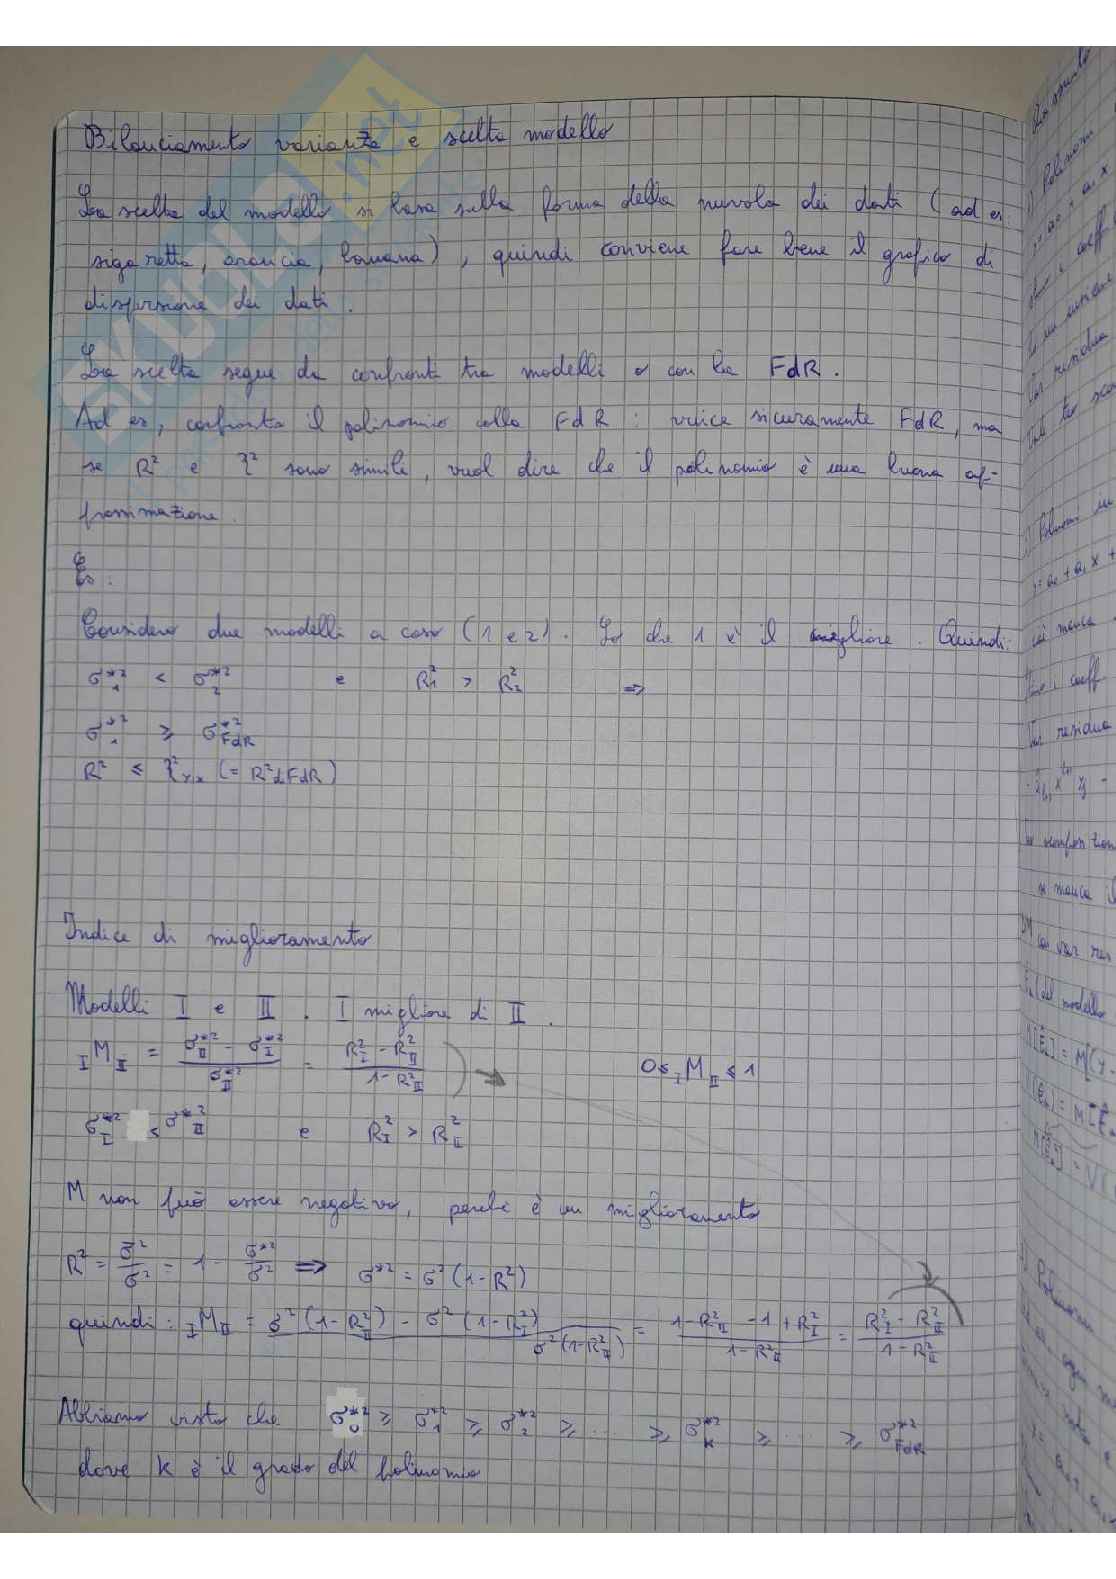 Bilanciamento varianza e scelta modello
La scelta del modello si basa sulla forma della nuvola dei dati (ad es.
sigaretta, arancia, banana), quindi conviene fare bene il grafico di
dispersione dei dati.
La scelta segue da confronti tra modelli o con la FdR.
Ad es, confronto il polinomio colla FdR : vince sicuramente FdR, ma
se R² e η² sono simili, vuol dire che il polinomio è una buona ap-
prossimazione.
Es:
Considero due modelli a caso (1 e 2). So che 1 è il migliore. Quindi:
σ*²₁ < σ*²₂ e R²₁ > R²₂ ⇒
σ*²₁ ≥ σ*²FdR
R² ≤ η²YX (= R² d FdR)
Indice di miglioramento
Modelli I e II . I migliore di II.
IMII = (σ*²II - σ*²I) / σ*²II = (R²I - R²II) / (1 - R²II) 0 ≤ IMII ≤ 1
σ*²I < σ*²II e R²I > R²II
M non può essere negativo, perché è un miglioramento
R² = σ̄² / σ² = 1 - σ*² / σ² ⇒ σ*² = σ² (1 - R²)
quindi: IMII = (σ² (1 - R²II) - σ² (1 - R²I)) / (σ² (1 - R²II)) = (1 - R²II - 1 + R²I) / (1 - R²II) = (R²I - R²II) / (1 - R²II)
Abbiamo visto che σ*²₀ ≥ σ*²₁ ≥ σ*²₂ ≥ ... ≥ σ*²K ≥ ... ≥ σ*²FdR
dove K è il grado del polinomio